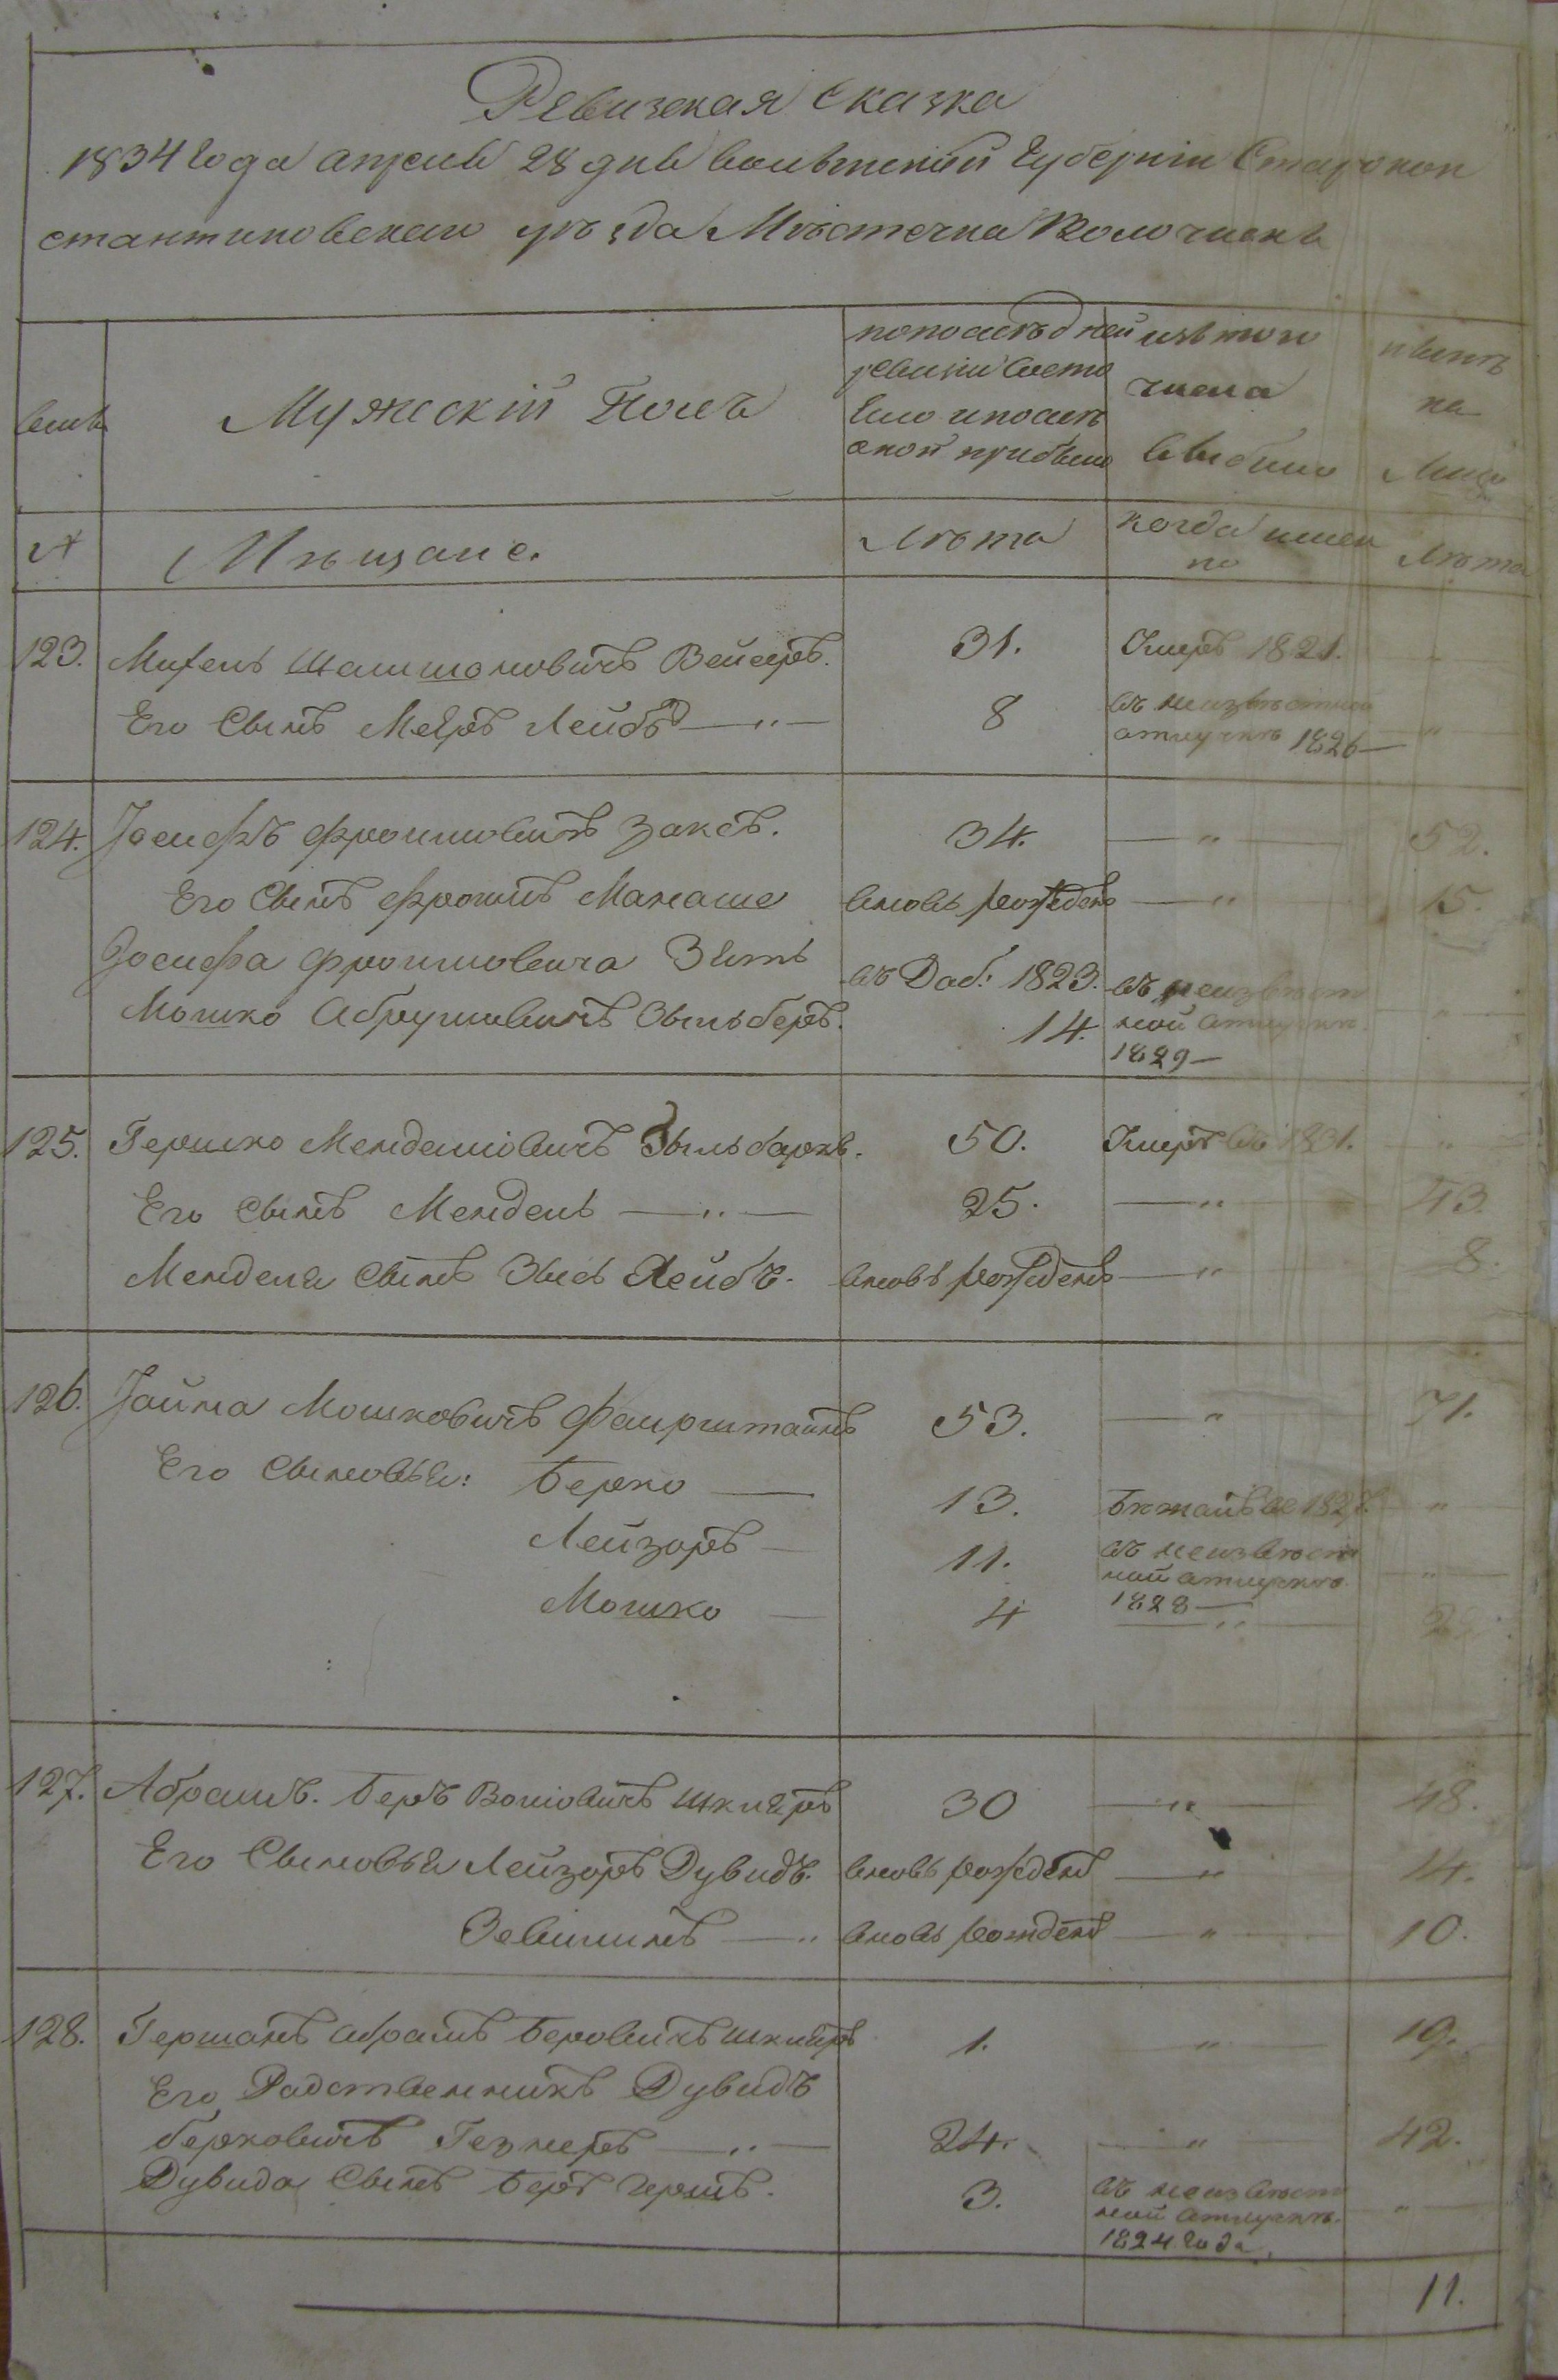 Ревизская Сказка
1834 Года апреля 28 дня Волынской Губернии Старокон
стантиновскаго уѣзда Мѣстечка Волочискъ
Мужескій Полъ
по последней
ревизіи Состо
яло и послѣ
оной прибыло
изъ того
числа
выбыло
нынѣ
на
Лицо
№
Мѣщане.
Лѣта
когда имен
но
Лѣта
123. Михель Шамшоновичъ Вейсеръ. 31. Умеръ 1821.
Его Сынъ Мееръ Лейбъ — „ — 8 въ неизвѣстной
отлучкѣ 1826 — „
124. Іосифъ Фроимовичъ Заксъ. 34. — „ — 52.
Его Сынъ Фроимъ Манаше вновь рожденъ — „ — 15.
Іосифа Фроимовича Зять
Мошко Абрумовичъ Зильберъ.
въ Доб: 1823.
14.
въ неизвѣст
ной отлучкѣ
1829 —
„
125. Гершко Менделіовичъ Зильбаркъ. 50. Умеръ въ 1831. „
Его Сынъ Мендель — „ — 25. — „ — 43.
Менделя Сынъ Зысь Лейбъ. вновь рожденъ — „ — 8.
126. Іойна Мошковичъ Фаирштаинъ 53. — „ — 71.
Его Сыновья: Берко — 13. Бѣжалъ въ — „
Лейзоръ — 11. въ неизвѣст
ной отлучкѣ
1828 —
— „ —
Мошко — 4 — „ —
127. Абрамъ. Беръ Волковичъ Шкляръ 30 — „ — 48.
Его Сыновья Лейзоръ Дувидъ. вновь рожденъ — „ — 14.
Зевиминъ — „ вновь рожденъ — „ — 10.
128. Гершонъ Абрамъ Беровичъ Шкляръ 1. — „ — 19.
Его Родственникъ Дувидъ
Берковичъ Гезнеръ — „ — 24. — „ — 42.
Дувида Сынъ Беръ Гершъ. 3. въ неизвѣст
ной отлучкѣ.
1824 Года.
„ —
11.